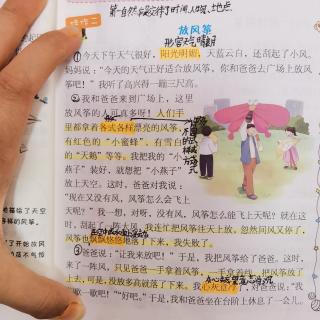 第一自然段交待了时间、人物、地点
放风筝
形容天气晴朗
①今天下午天气很好，阳光明媚，天蓝云白，还刮起了小风。
妈妈说：“今天的天气正好适合放风筝，你和爸爸去广场上放风
筝吧！”我听了高兴得一蹦三尺高。
②我和爸爸来到广场上，这里
放风筝的人可真多呀！人们手
里都拿着各式各样漂亮的风筝，
有红色的“小蜜蜂”、有雪白
的“天鹅”等等。我把我的“小
燕子”装好，就想把“小燕子”
放上天空。这时，爸爸对我说：
“现在又没有风，风筝怎么会飞上
天呢？”我一想，对呀，没有风，风筝怎么能飞上天呢？就在这
时，刮起了一阵大风，我连忙把风筝迎天上放。忽然间风又停了，
风筝也飘飘悠悠地落了下来，我失败了。
③爸爸说：“让我来放吧！”于是，我把风筝给了爸爸。这时，
来了一阵风，只见爸爸一手拿着风筝，一手拿着线，把风筝放了
上去，可是，没放多高就落了下来。我心灰意冷，对爸爸说：“我
歇一歇吧！”“好吧。”于是，我和爸爸坐在台阶上休息了一会儿。
给了天空
各样的风筝。
了开始放风